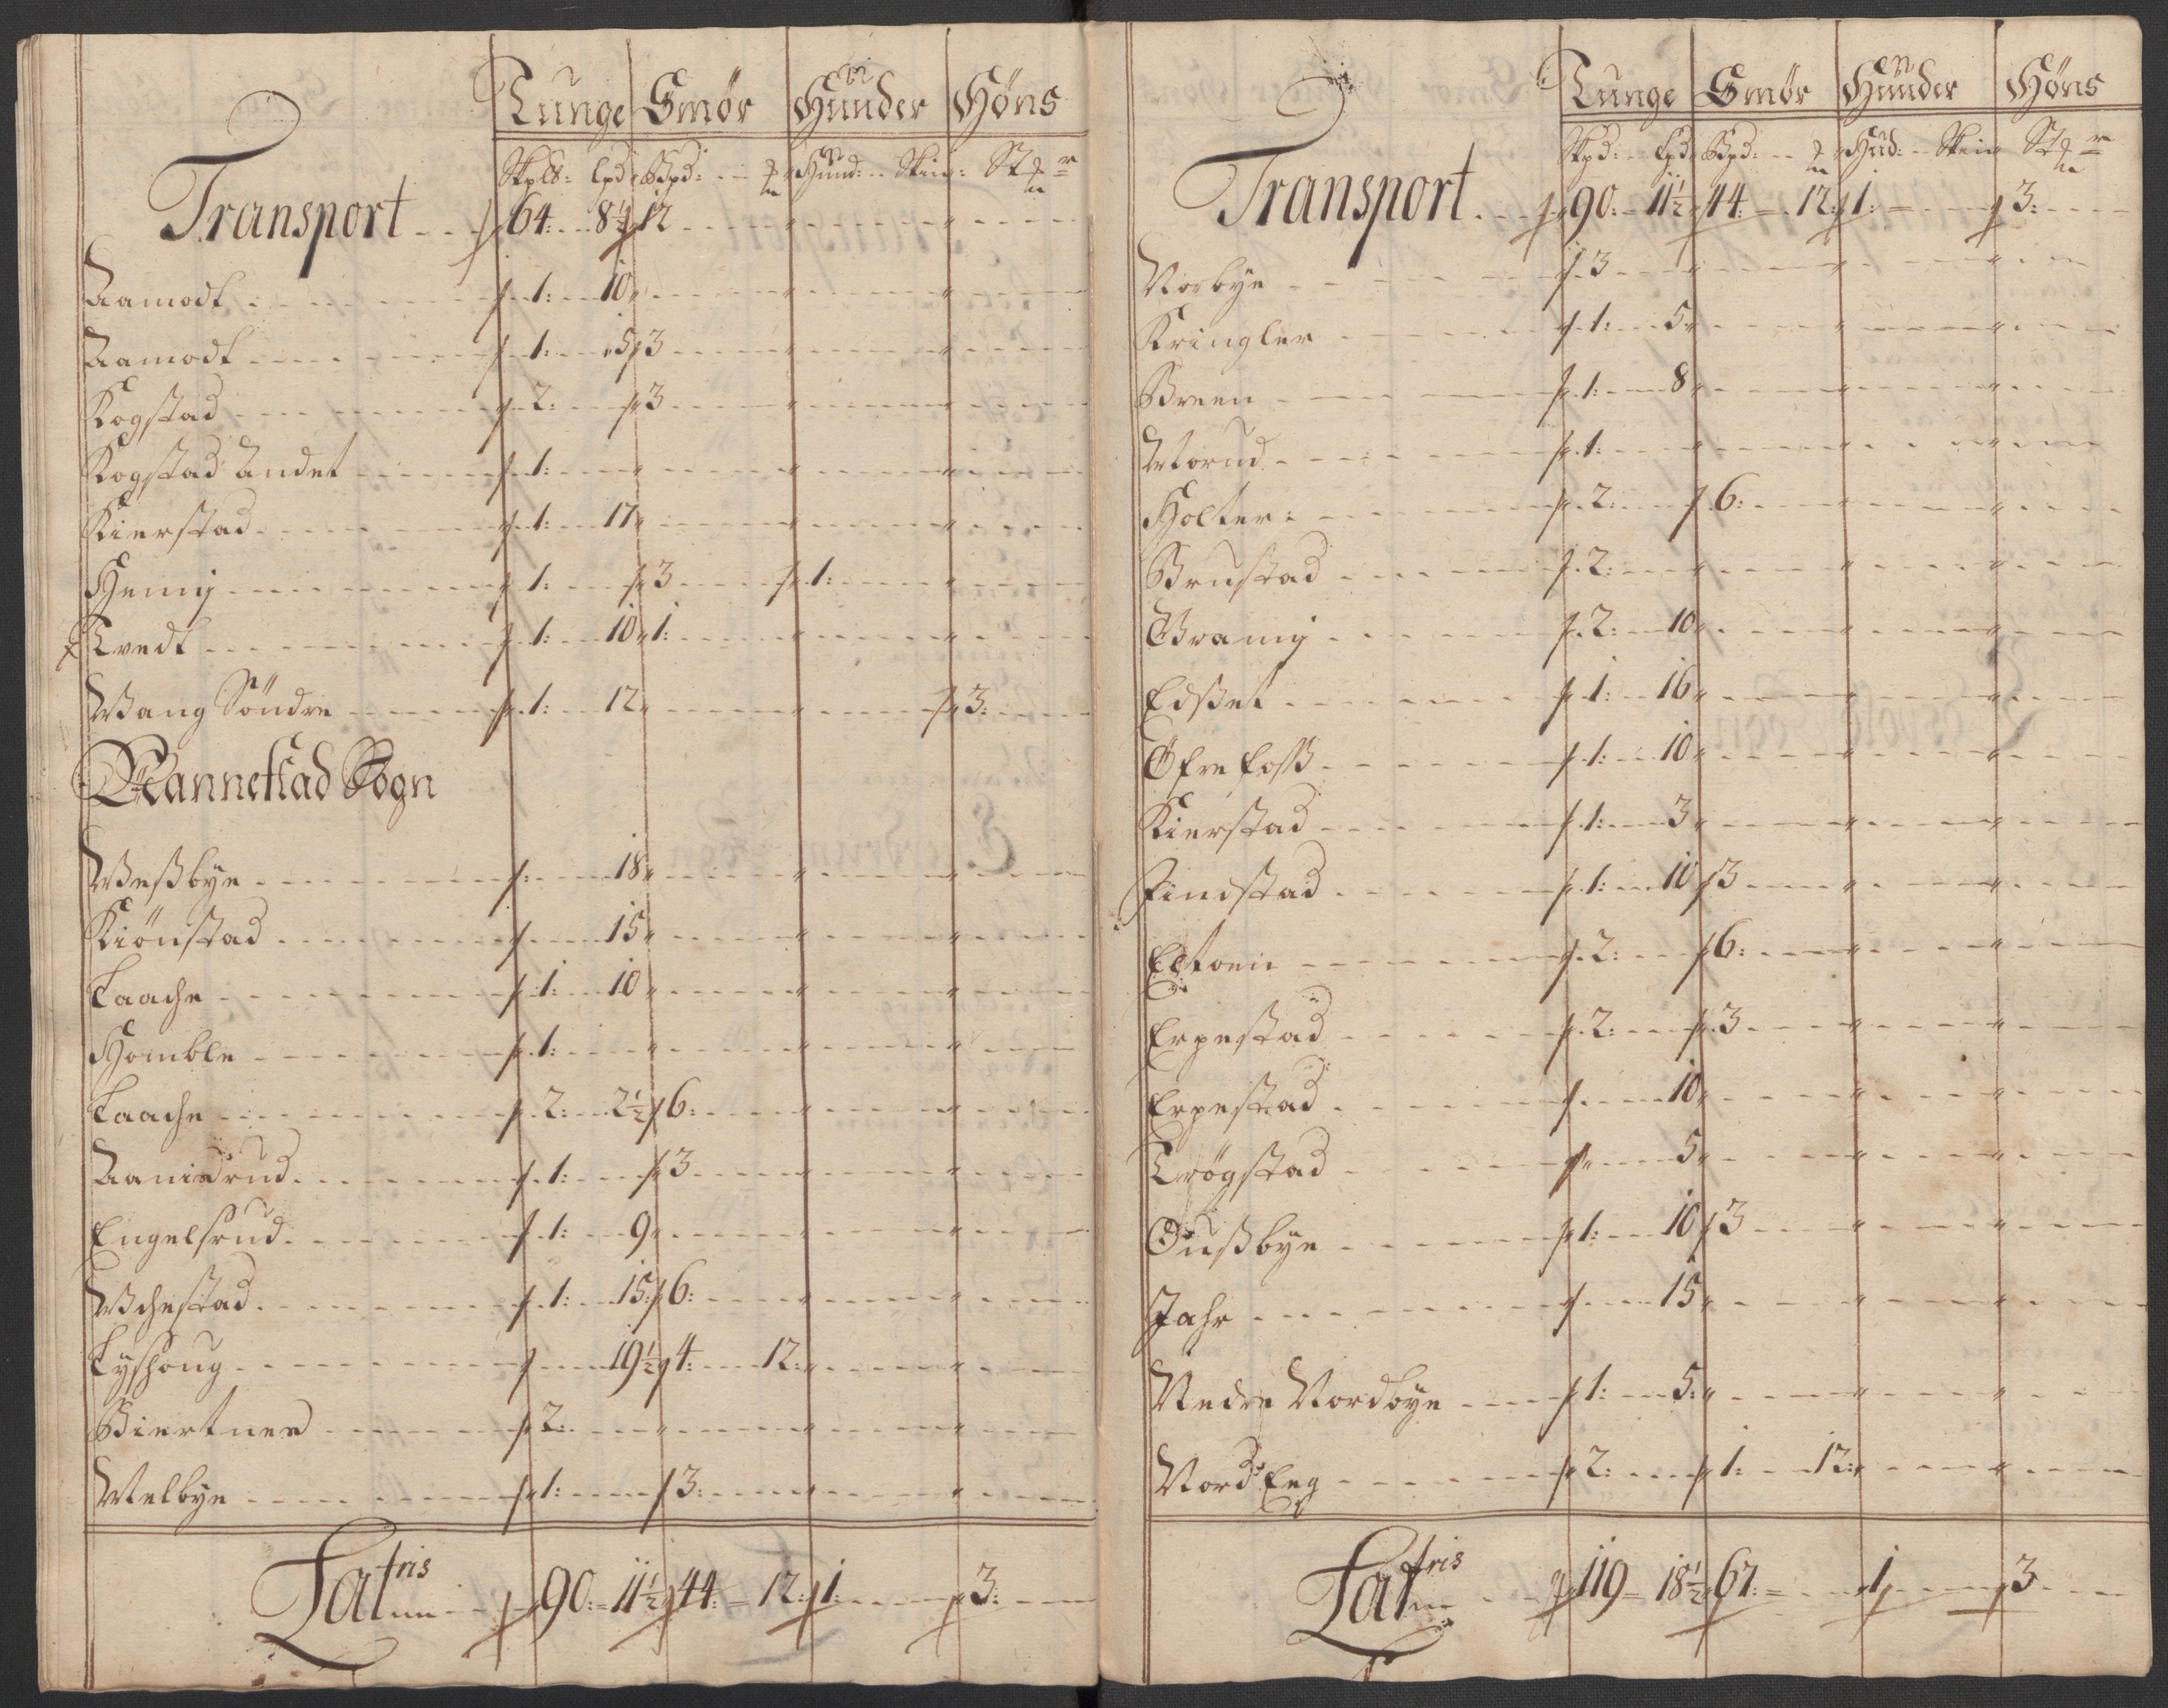 Tunge Smør Hünder Høns
Skpd: Lpd Bpd: Hünd: Skin: St
Transport 64: 8½ 12
Aamodt 1: 10
Aamodt 1: 5 3
Kogstad 2: 3
Kogstad Andet 1:
Kierstad 1: 17
Hennj 1: 3 1:
Tvedt 1: 10 1:
Wang Söndre 1: 12 3:
Nannestad Sogn
Weßbye 18
Kiönstad 15
Laache 1: 10
Homble 1:
Laache 2: 2½ 6:
Aamodrud 1: 3
Engelsrud 1: 9
Wchestad 1: 15: 6:
Lyshoug 19½ 4: 12:
Biertnes 2:
Melbye 1: 3:
Latris 90: 11½ 44: 12: 1: 3:
Tunge Smør Hünder Høns
Skpd: Lpd Bpd: Hüd: Skin St
Transport 90: 11½ 44: 12: 1: 3:
Norbye 3
Kringler 1: 5
Breen 1: 8
Morud 1:
Holter: 2: 6:
Brustad 2:
Gramj 2: 10
Edßet 1: 16
Öfre Foss 1: 10
Kierstad 1: 3
Findstad 1: 10 3
Eltoen 2: 6:
Erpestad 2: 3
Erpestad 10
Trögstad 5
Oußbye 1: 10 3
Jahr 15
Nedre Nordbye 1: 5:
Nord Eng 2: 1: 12:
Latris 119 18½ 67: 1 3